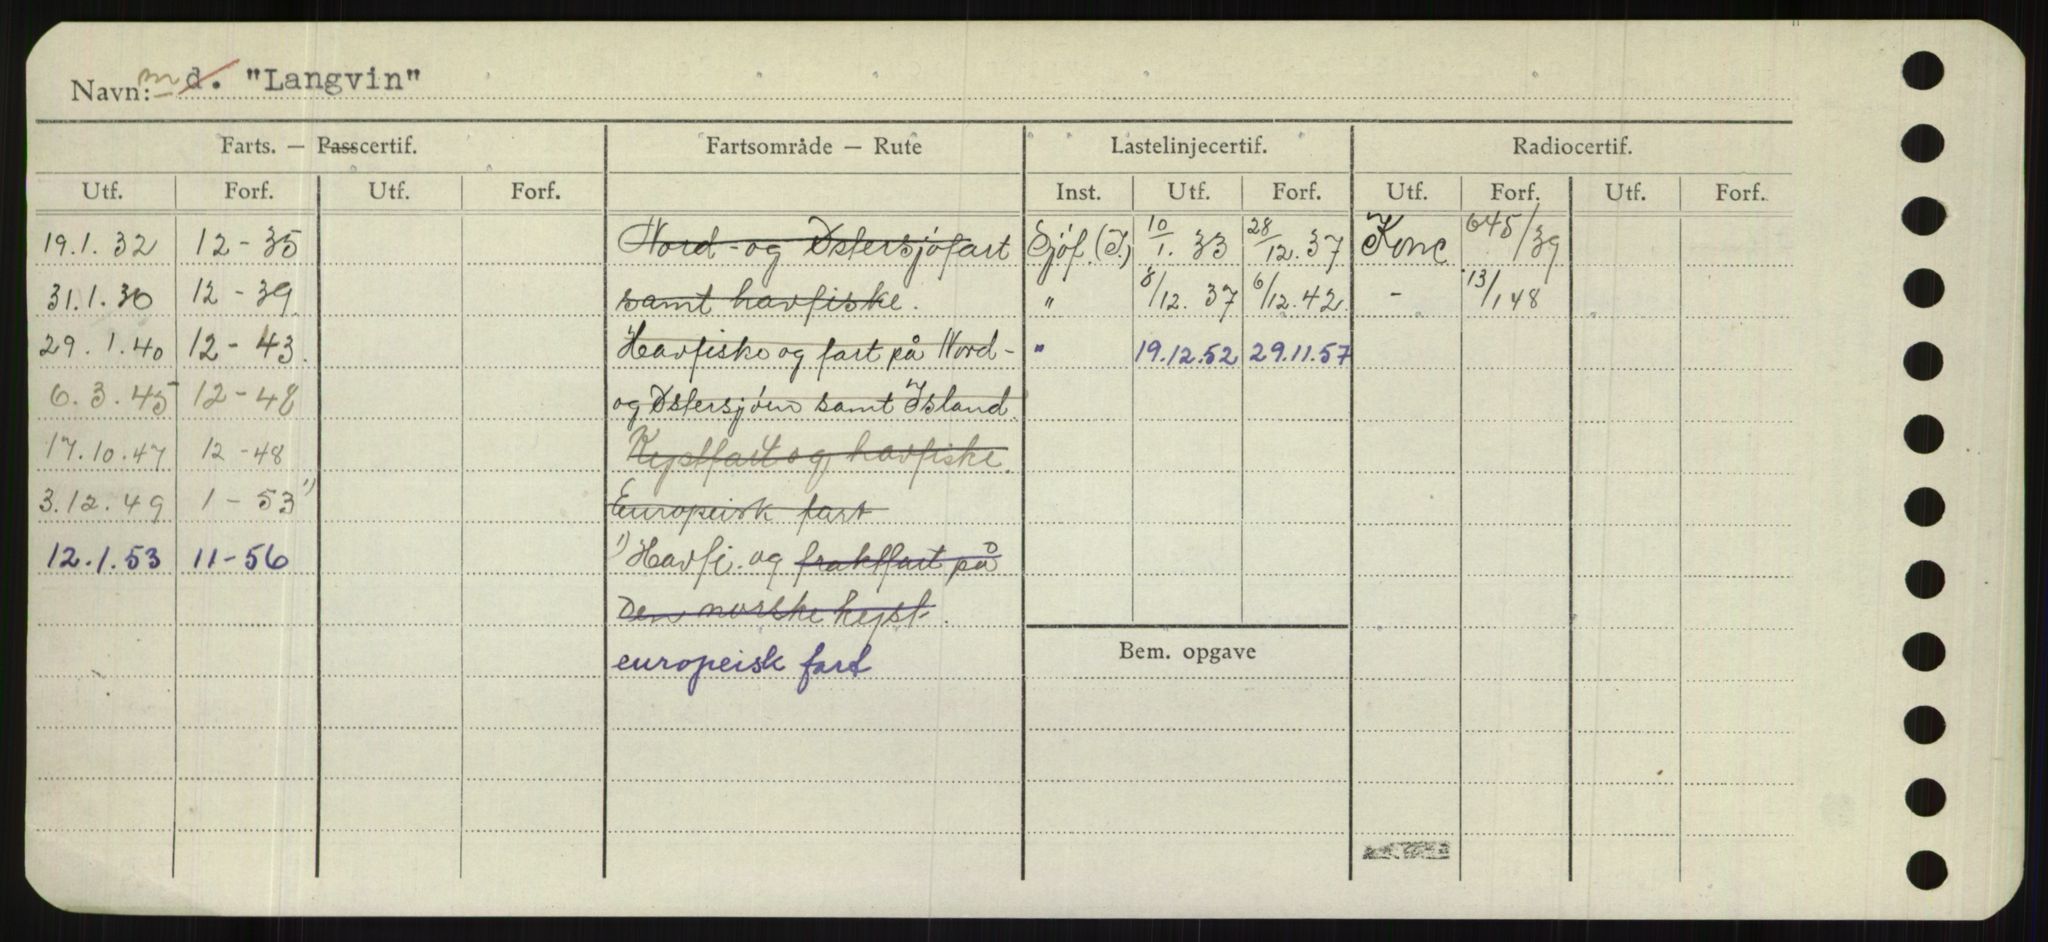 Navn: m d. "Langvin"
Farts. — Passcertif. Fartsområde — Rute Lastelinjecertif. Radiocertif.
Utf. Forf. Utf. Forf. Inst. Utf. Forf. Utf. Forf. Utf. Forf.
19.1.32 12-35 Nord- og Østersjøfart Sjöf.(I.) 10/1. 33 28/12. 37 Konc 645/39
31.1.36 12-39 samt havfiske. " 8/12. 37 6/12. 42 - 13/1 48
29.1.40 12-43. Havfiske og fart på Nord- " 19.12.52 29.11.57
6.3.45 12-48 og Østersjøen samt Island.
17.10.47 12-48 Kystfart og havfiske.
3.12.49 1-53 1) Europeisk fart
12.1.53 11-56 1) Havfi. og fraktfart på
Den norske kyst.
europeisk fart
Bem. opgave